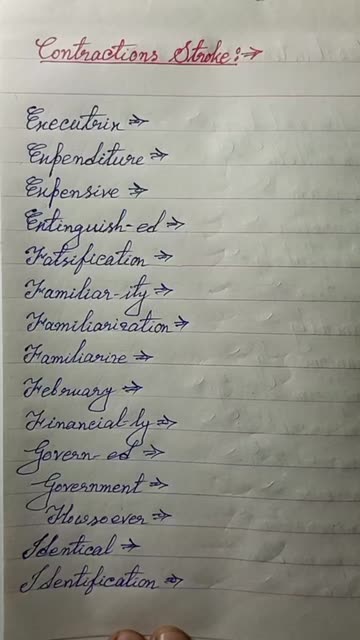 Contractions Stroke:→
Executrix →
Expenditure →
Expensive →
Extinguish-ed →
Falsification →
Familiar-ity →
Familiarization →
Familiarize →
February →
Financial-ly →
Govern-ed →
Government →
Howsoever →
Identical →
Identification →